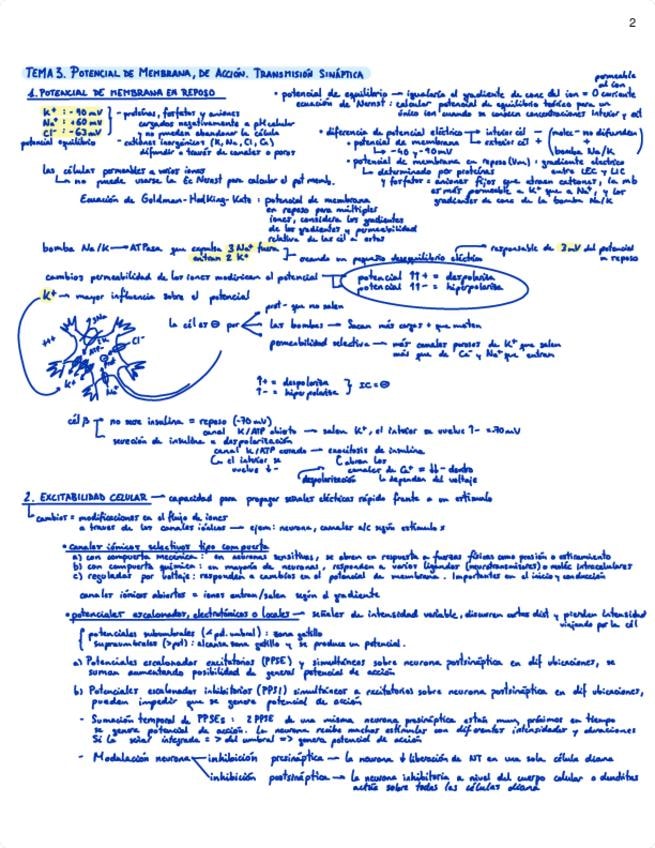 2
TEMA 3. POTENCIAL DE MEMBRANA, DE ACCIÓN. TRANSMISIÓN SINÁPTICA
1. POTENCIAL DE MEMBRANA EN REPOSO
K+ : -90 mV
Na+ : +60 mV
Cl- : -63 mV
potencial equilibrio
- proteínas, fosfatos y aniones
cargados negativamente a pH celular
y no pueden abandonar la célula
- cationes inorgánicos (K, Na, Cl, Ca)
difundir a través de canales o poros
permeable
al ion
• potencial de equilibrio — igualaría el gradiente de conc del ion = 0 corriente
ecuación de Nernst: calcular potencial de equilibrio teórico para un
único ion cuando se conocen concentraciones interior y ext
• diferencia de potencial eléctrico
interior cél -
exterior cél +
(molec - no difunden)
+
bomba Na/K
• potencial de membrana
-40 y -90 mV
• potencial de membrana en reposo (Vm) : gradiente eléctrico
determinado por proteínas entre LEC y LIC
y fosfator = aniones fijos que atraen cationes, la mb
es más permeable a K+ que a Na+, y los
gradientes de conc de la bomba Na/K
las células permeables a varios iones
no puede usarse la Ec Nernst para calcular el pot memb.
Ecuación de Goldman-Hodking-Katz : potencial de membrana
en reposo para múltiples
iones, considera los gradientes
de los gradientes y permeabilidad
relativa de la cél a estos
bomba Na/K — ATPasa que expulsa 3 Na+ fuera
entran 2 K+
creando un pequeño desequilibrio eléctrico
responsable de 3 mV del potencial
en reposo
cambios permeabilidad de los iones modifican el potencial
potencial ↑↑+ = despolariza
potencial ↑↑- = hiperpolariza
K+ — mayor influencia sobre el potencial
la cél es ⊖ por
prot- que no salen
las bombas — Sacan más cargas + que meten
permeabilidad selectiva — más canales porosos de K+ que salen
más que de Ca y Na+ que entran
3Na
2K
ATP
Cl-
K+
Na+
↑+ = despolariza
↑- = hiperpolariza
IC = ⊖
cél β
no secre insulina = reposo (-70 mV)
canal K/ATP abierto — salen K+, el interior se vuelve ↑- = -70 mV
secreción de insulina = despolarización
canal K/ATP cerrado — exocitosis de insulina
en el interior se
vuelve ↓-
abran los
canales de Ca+ = ↓↓- dentro
despolarización
dependen del voltaje
2. EXCITABILIDAD CELULAR — capacidad para propagar señales eléctricas rápido frente a un estímulo
cambios = modificaciones en el flujo de iones
a través de los canales iónicos — ejem: neurona, canales a/c según estímulos
• canales iónicos selectivos tipo compuerta
a) con compuerta mecánica : en neuronas sensitivas, se abren en respuesta a fuerzas físicas como presión o estiramiento
b) con compuerta química : en mayoría de neuronas, responden a varios ligandos (neurotransmisores) o moléc intracelulares
c) regulados por voltaje : responden a cambios en el potencial de membrana. Importantes en el inicio y conducción
canales iónicos abiertos = iones entran/salen según el gradiente
• potenciales escalonados, electrotónicos o locales — señales de intensidad variable, discurren cortas dist y pierden intensidad
viajando por la cél
potenciales subumbrales (< pot. umbral) : zona gatillo
supraumbrales (>pot) : alcanza zona gatillo y se produce un potencial.
a) Potenciales escalonados excitatorios (PPSE) y simultáneos sobre neurona postsináptica en dif ubicaciones, se
suman aumentando posibilidad de generar potencial de acción
b) Potenciales escalonados inhibitorios (PPSI) simultáneos a excitatorios sobre neurona postsináptica en dif ubicaciones,
pueden impedir que se genere potencial de acción
- Sumación temporal de PPSEs : 2 PPSE de una misma neurona presináptica están muy próximos en tiempo
se genera potencial de acción. La neurona recibe muchos estímulos con diferentes intensidades y duraciones
Si la señal integrada = > del umbral => genera potencial de acción
- Modulación neurona
inhibición presináptica — la neurona ↓ liberación de NT en una sola célula diana
inhibición postsináptica — la neurona inhibitoria a nivel del cuerpo celular o dendritas
actúa sobre todas las células diana